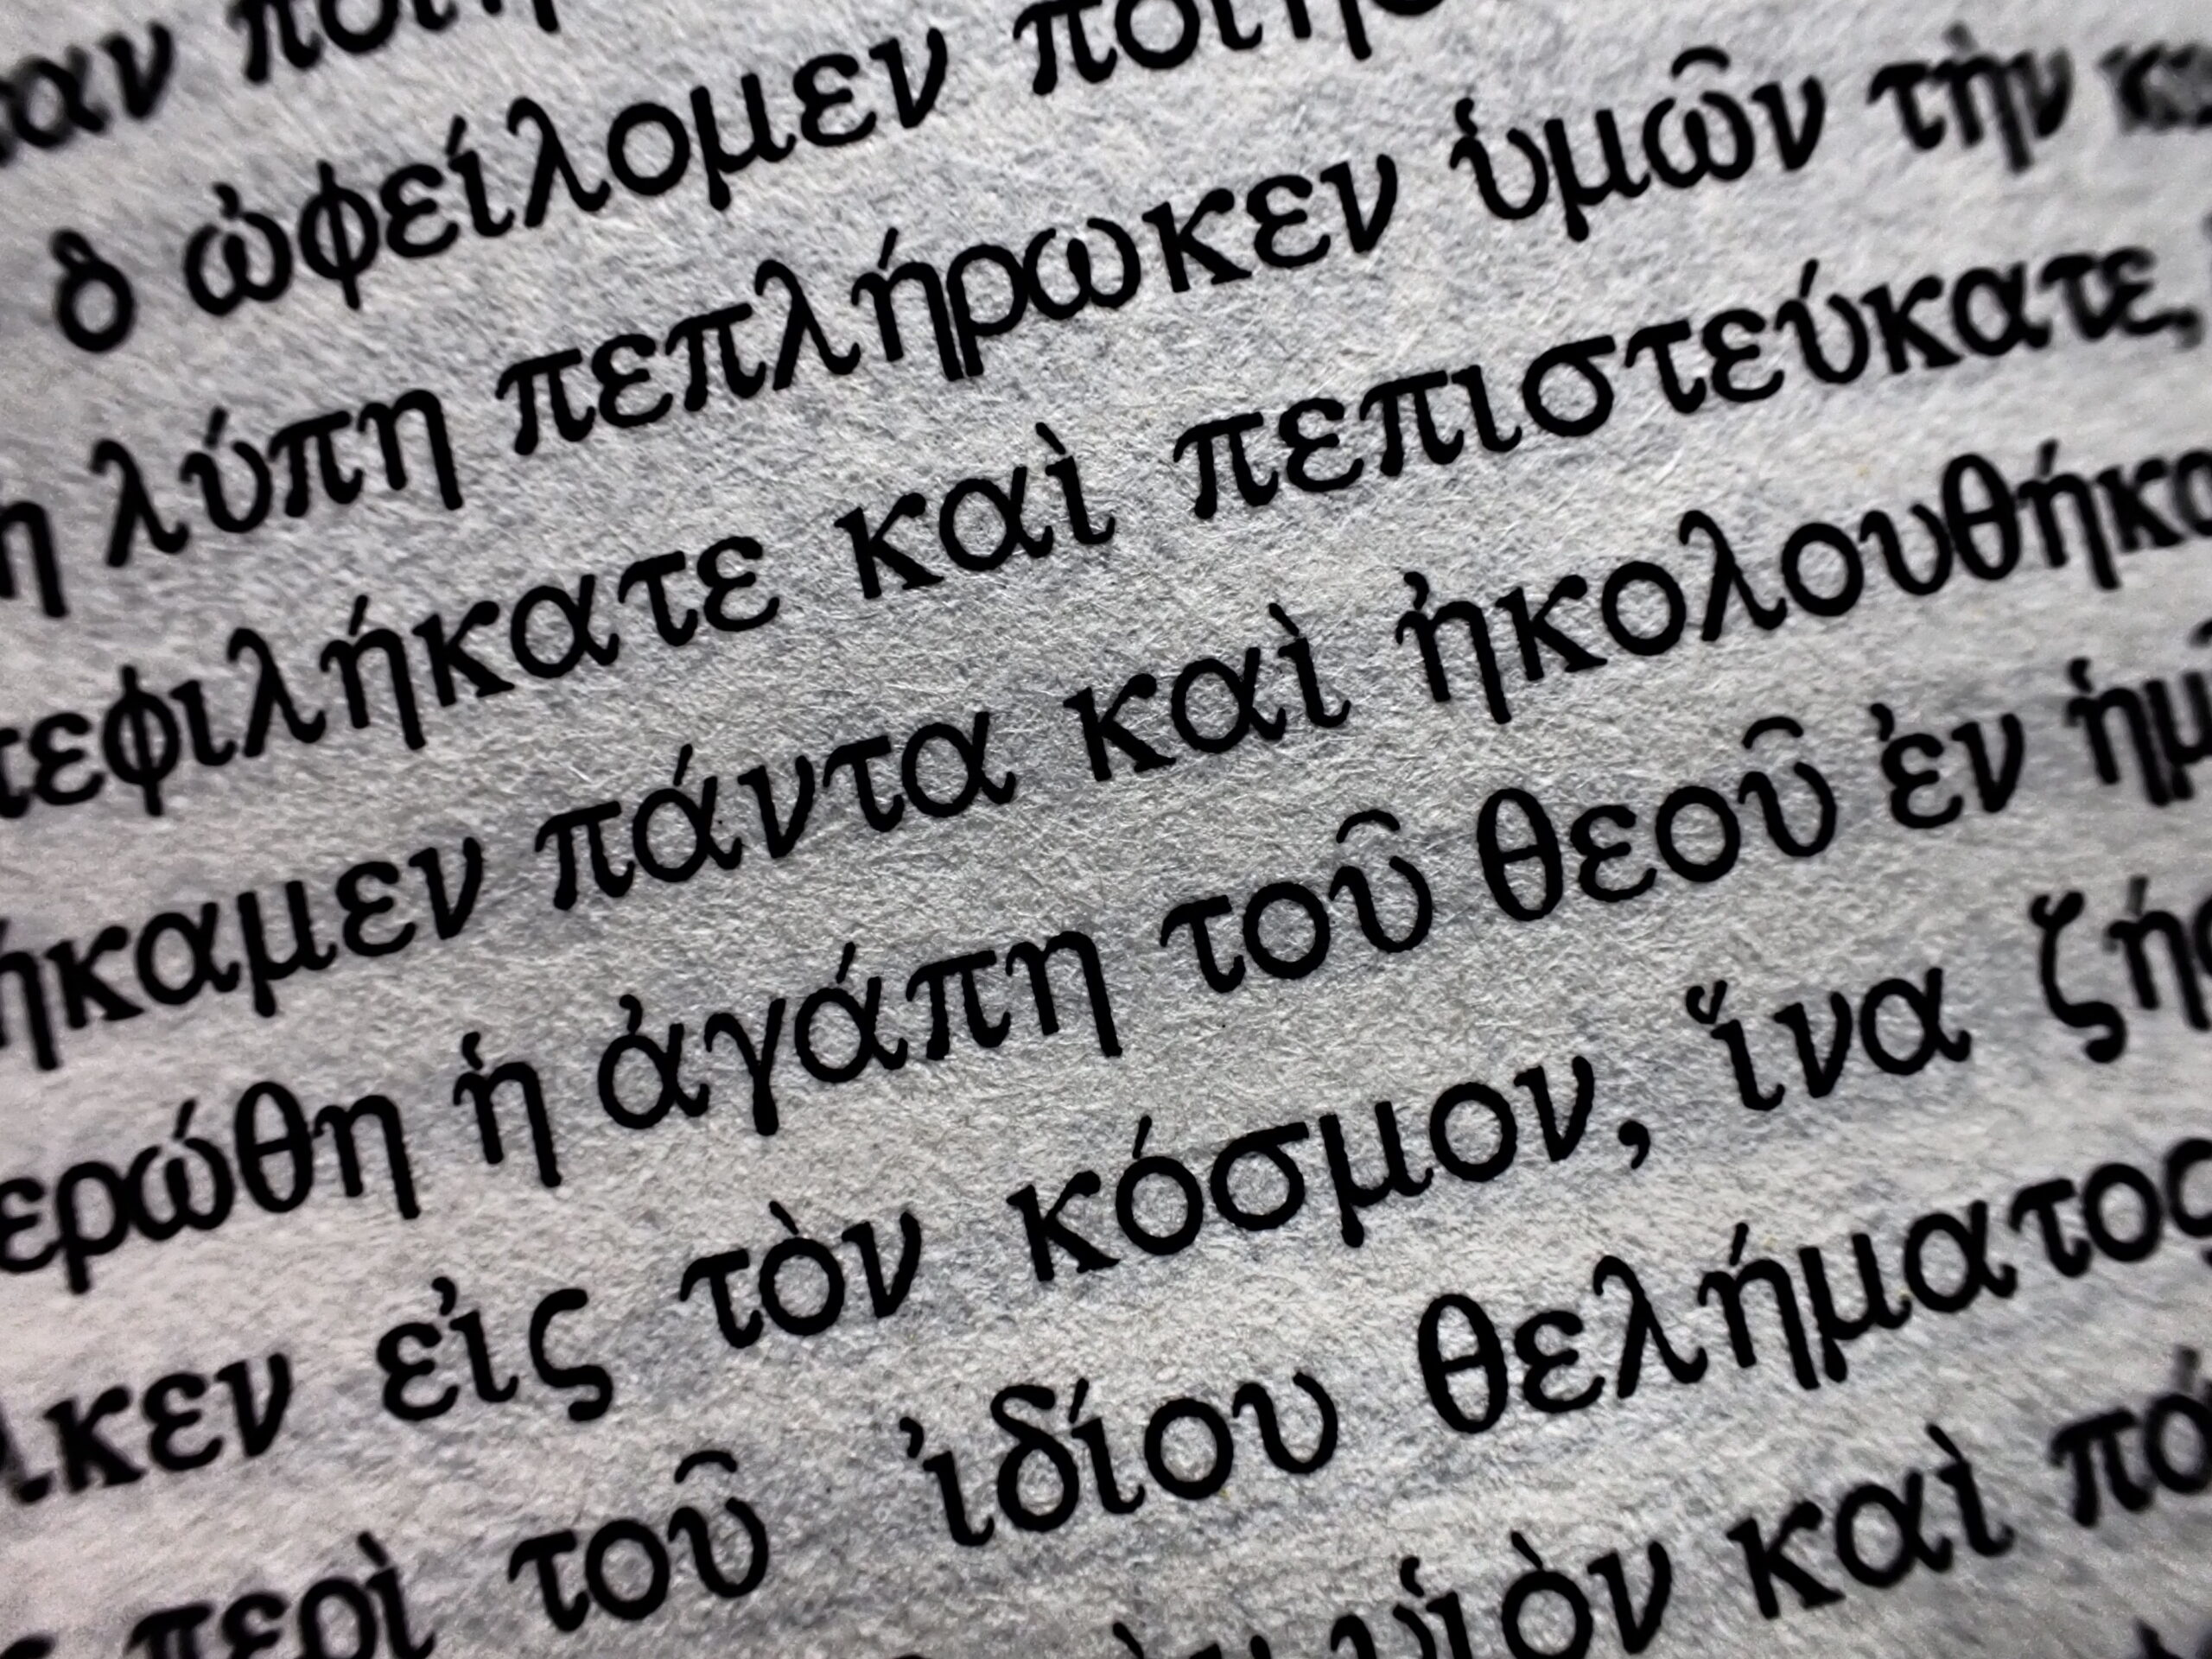 ὃ ὠφείλομεν
λύπη πεπλήρωκεν ὑμῶν τὴν
πεφιλήκατε καὶ πεπιστεύκατε,
πάντα καὶ ἠκολουθήκα
ἡ ἀγάπη τοῦ θεοῦ ἐν
εἰς τὸν κόσμον, ἵνα
περὶ τοῦ ἰδίου θελήματος
υἱὸν καὶ